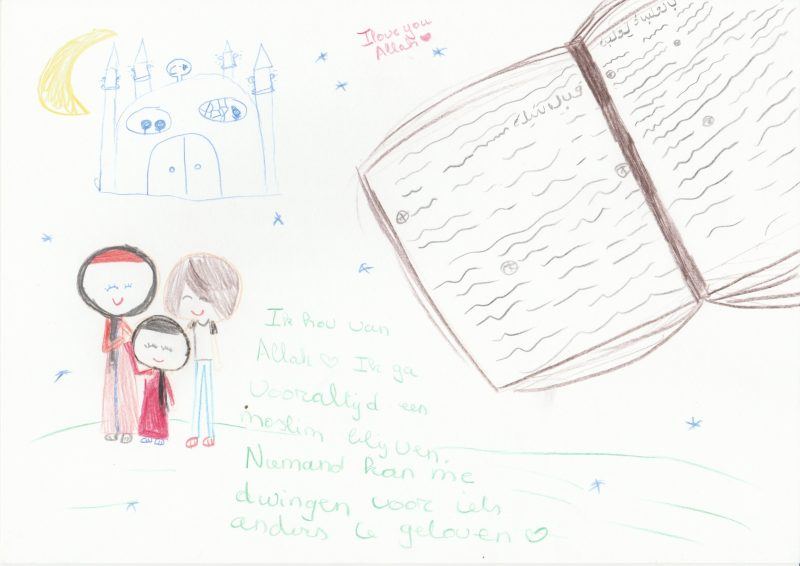 I love you
Allah
Ik hou van
Allah ♡ Ik ga
voor altijd een
moslim blijven.
Niemand kan me
dwingen voor iets
anders te geloven ♡